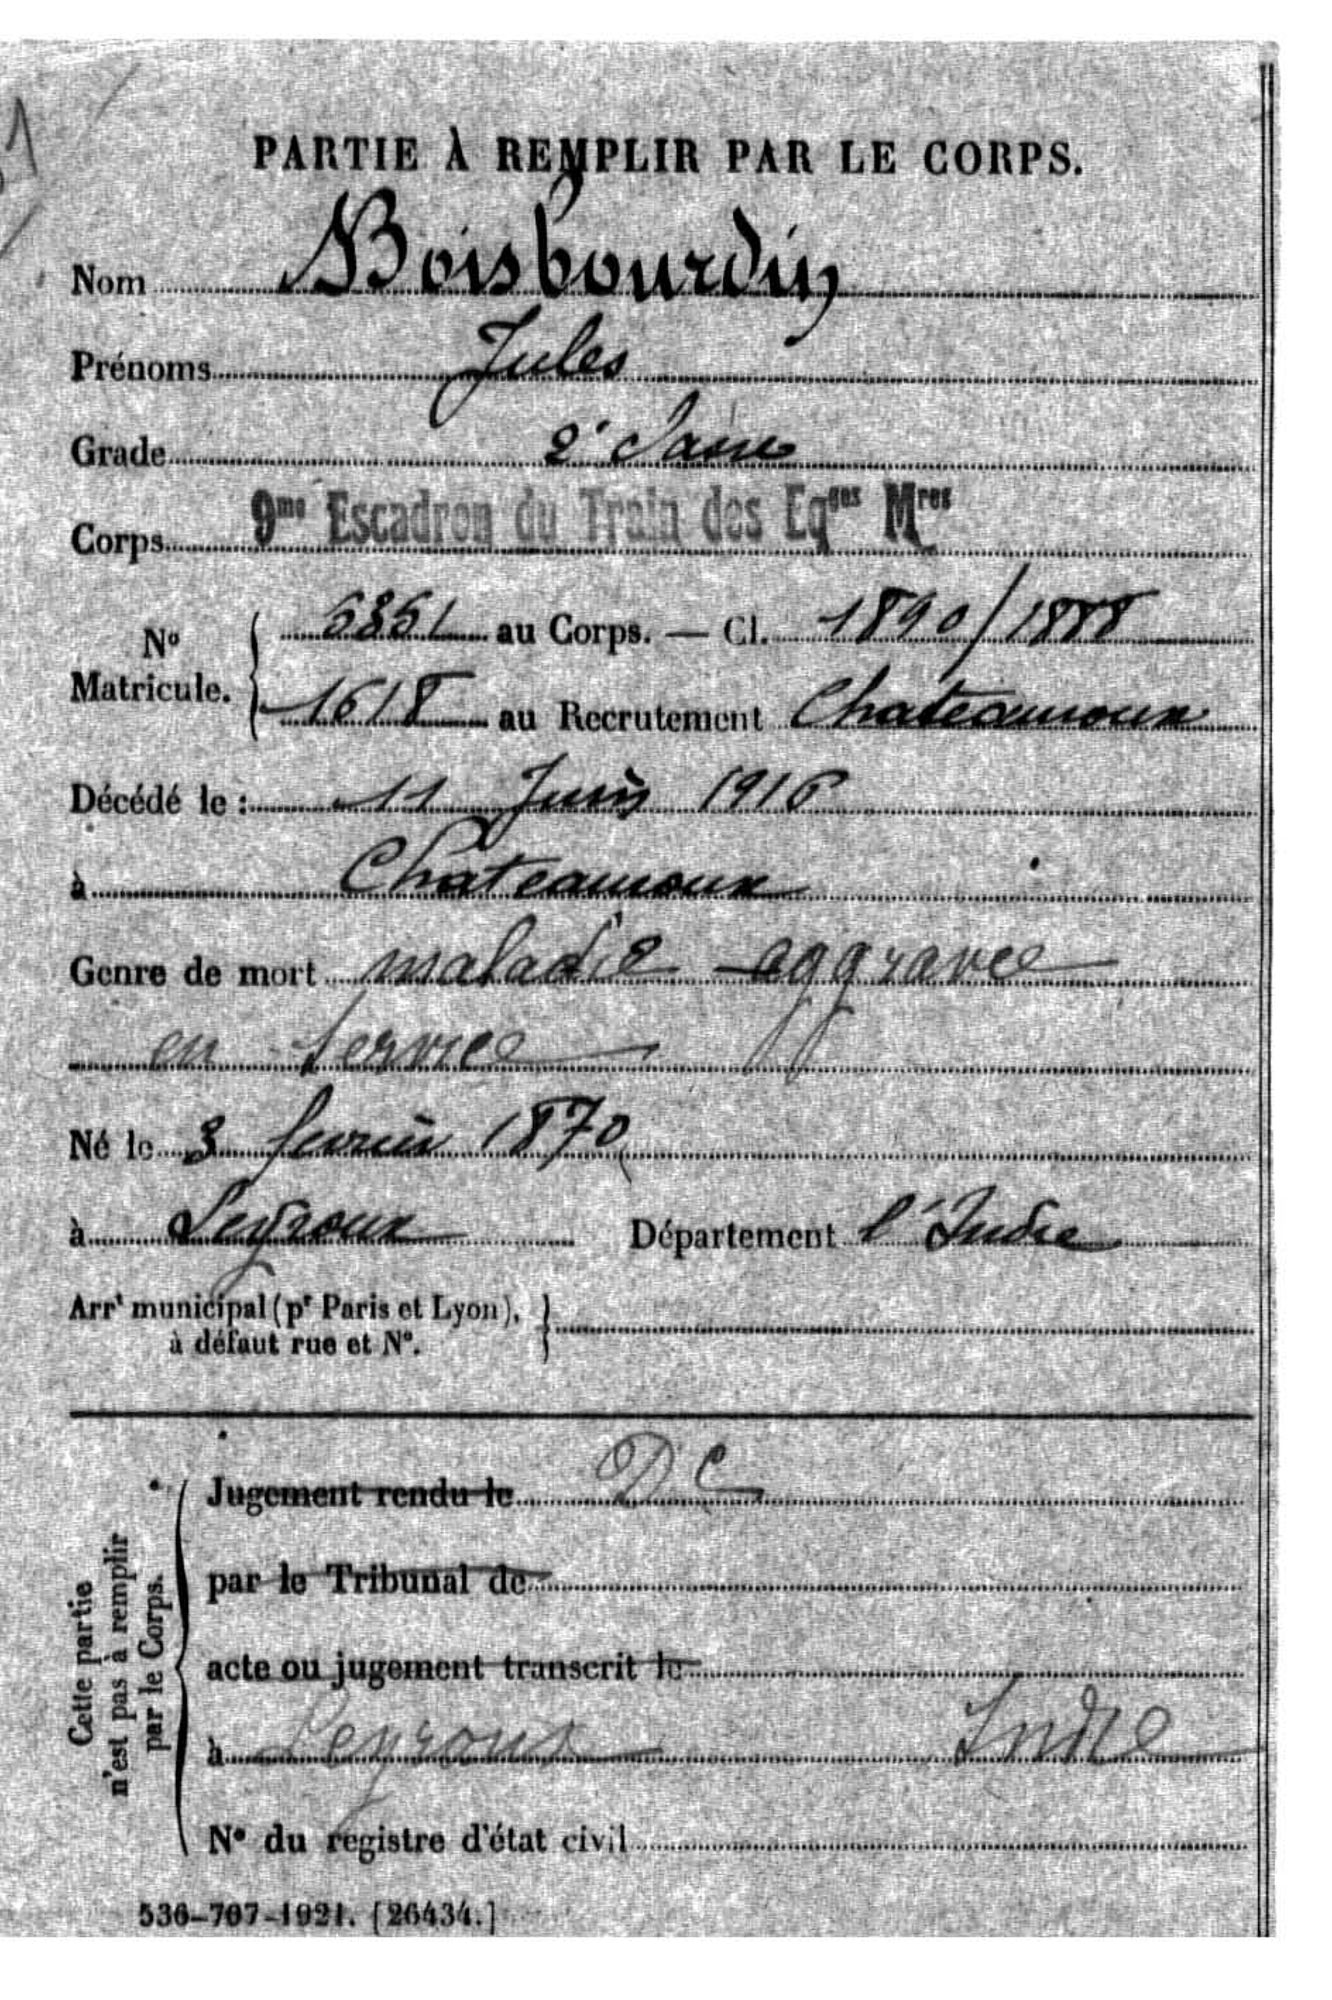 PARTIE À REMPLIR PAR LE CORPS.
Nom Boisbourdin
Prénoms Jules
Grade 2e classe
Corps 9me Escadron du Train des Eqges Mres
No Matricule. 5351 au Corps. — Cl. 1890/1888
1618 au Recrutement Chateauroux
Décédé le : 11 Juin 1916
à Chateauroux
Genre de mort maladie aggravée
en service
Né le 3 fevrier 1870
à Leyroux Département l'Indre
Arrt municipal (pr Paris et Lyon),
à défaut rue et No.
Cette partie
n'est pas à remplir
par le Corps.
Jugement rendu le DC
par le Tribunal de
acte ou jugement transcrit le
à Leyroux Indre
No du registre d'état civil
536-707-1921. [26434.]